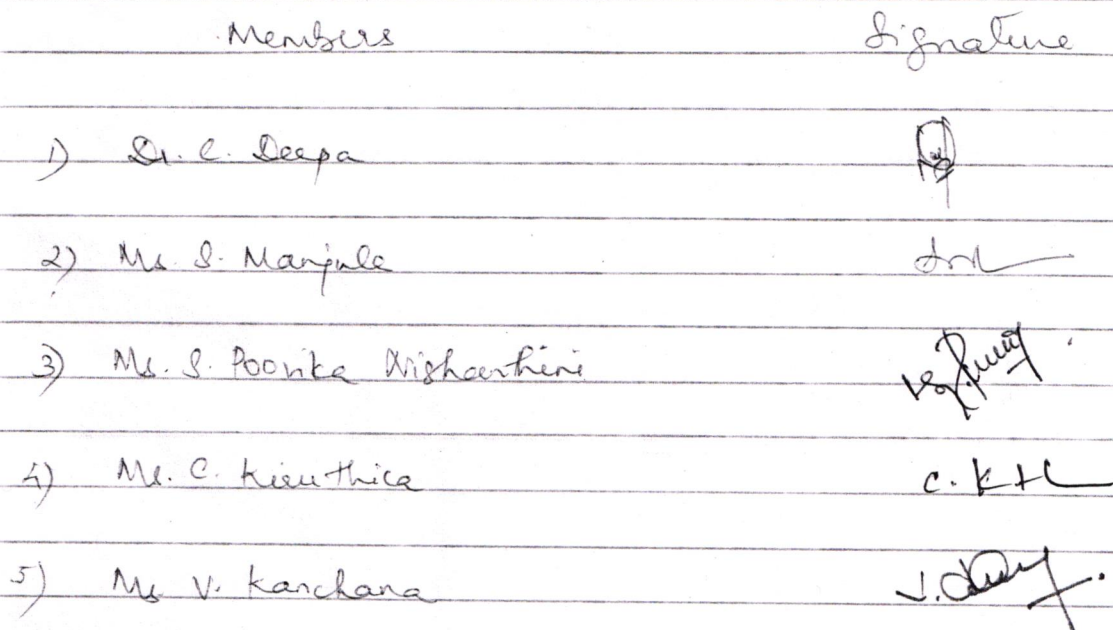 Members Signature
1) Dr. C. Deepa
2) Ms. S. Manjula
3) Ms. S. Poovika Nishanthini
4) Ms. C. Kiruthica
5) Ms V. Kanchana